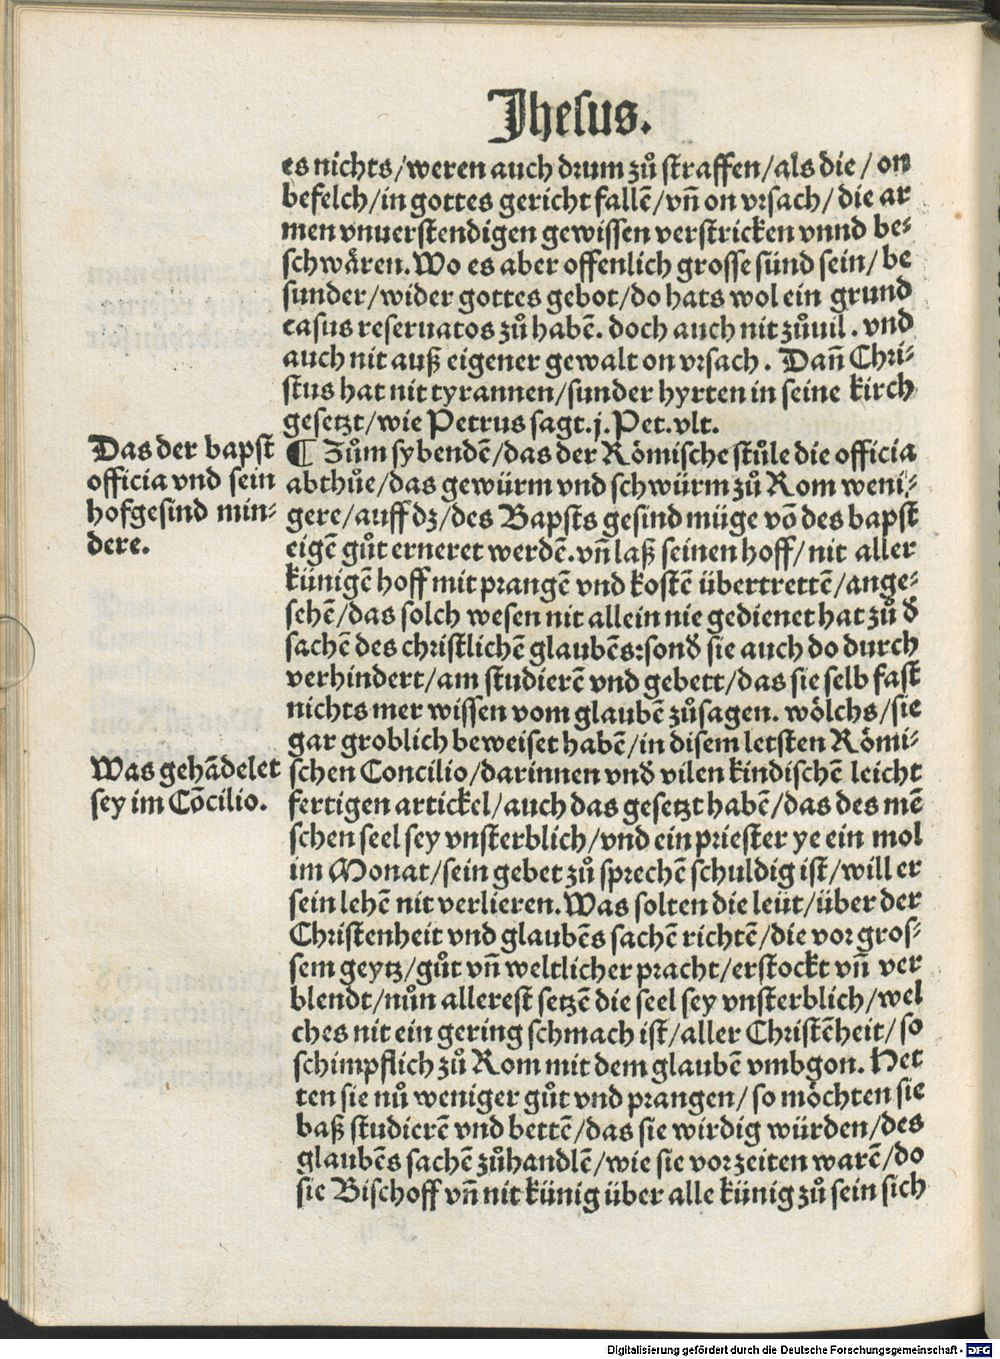 Jhesus.
es nichts/weren auch drum zů straffen/als die/on
befelch/in gottes gericht fallẽ/vñ on vrsach/die ar
men vnuerstendigen gewissen verstricken vnnd be-
schwären. Wo es aber offenlich grosse sünd sein/be
sunder/wider gottes gebot/do hats wol ein grund
casus reseruatos zů habẽ. doch auch nit zůuil. vnd
auch nit auß eigener gewalt on vrsach. Dañ Chri-
stus hat nit tyrannen/sunder hyrten in seine kirch
gesetzt/wie Petrus sagt. j. Pet. vlt.
Das der bapst
officia vnd sein
hofgesind min-
dere.
¶ Zům sybendẽ/das der Römische stůle die officia
abthůe/das gewürm vnd schwürm zů Rom weni-
gere/auff dz/des Bapsts gesind müge võ des bapst
eigẽ gůt erneret werdẽ. vñ laß seinen hoff/nit aller
künigẽ hoff mit prangẽ vnd kostẽ übertrettẽ/ange-
sehẽ/das solch wesen nit allein nie gedienet hat zů d̕
sachẽ des christlichẽ glaubẽs: sond̕ sie auch do durch
verhindert/am studierẽ vnd gebett/das sie selb fast
nichts mer wissen vom glaubẽ zůsagen. wölchs/sie
gar groblich beweiset habẽ/in disem letsten Römi-
Was gehãdelet
sey im Cõcilio.
schen Concilio/darinnen vnd̕ vilen kindischẽ leicht
fertigen artickel/auch das gesetzt habẽ/das des mẽ
schen seel sey vnsterblich/vnd ein priester ye ein mol
im Monat/sein gebet zů sprechẽ schuldig ist/will er
sein lehẽ nit verlieren. Was solten die leüt/über der
Christenheit vnd glaubẽs sachẽ richtẽ/die vor gros-
sem geytz/gůt vñ weltlicher pracht/erstockt vñ ver
blendt/nůn allerest setzẽ die seel sey vnsterblich/wel
ches nit ein gering schmach ist/aller Christẽheit/so
schimpflich zů Rom mit dem glaubẽ vmbgon. Het
ten sie nů weniger gůt vnd prangen/so möchten sie
baß studierẽ vnd bettẽ/das sie wirdig würden/des
glaubẽs sachẽ zůhandlẽ/wie sie vorzeiten warẽ/do
sie Bischoff vñ nit künig über alle künig zů sein sich
Digitalisierung gefördert durch die Deutsche Forschungsgemeinschaft - DFG